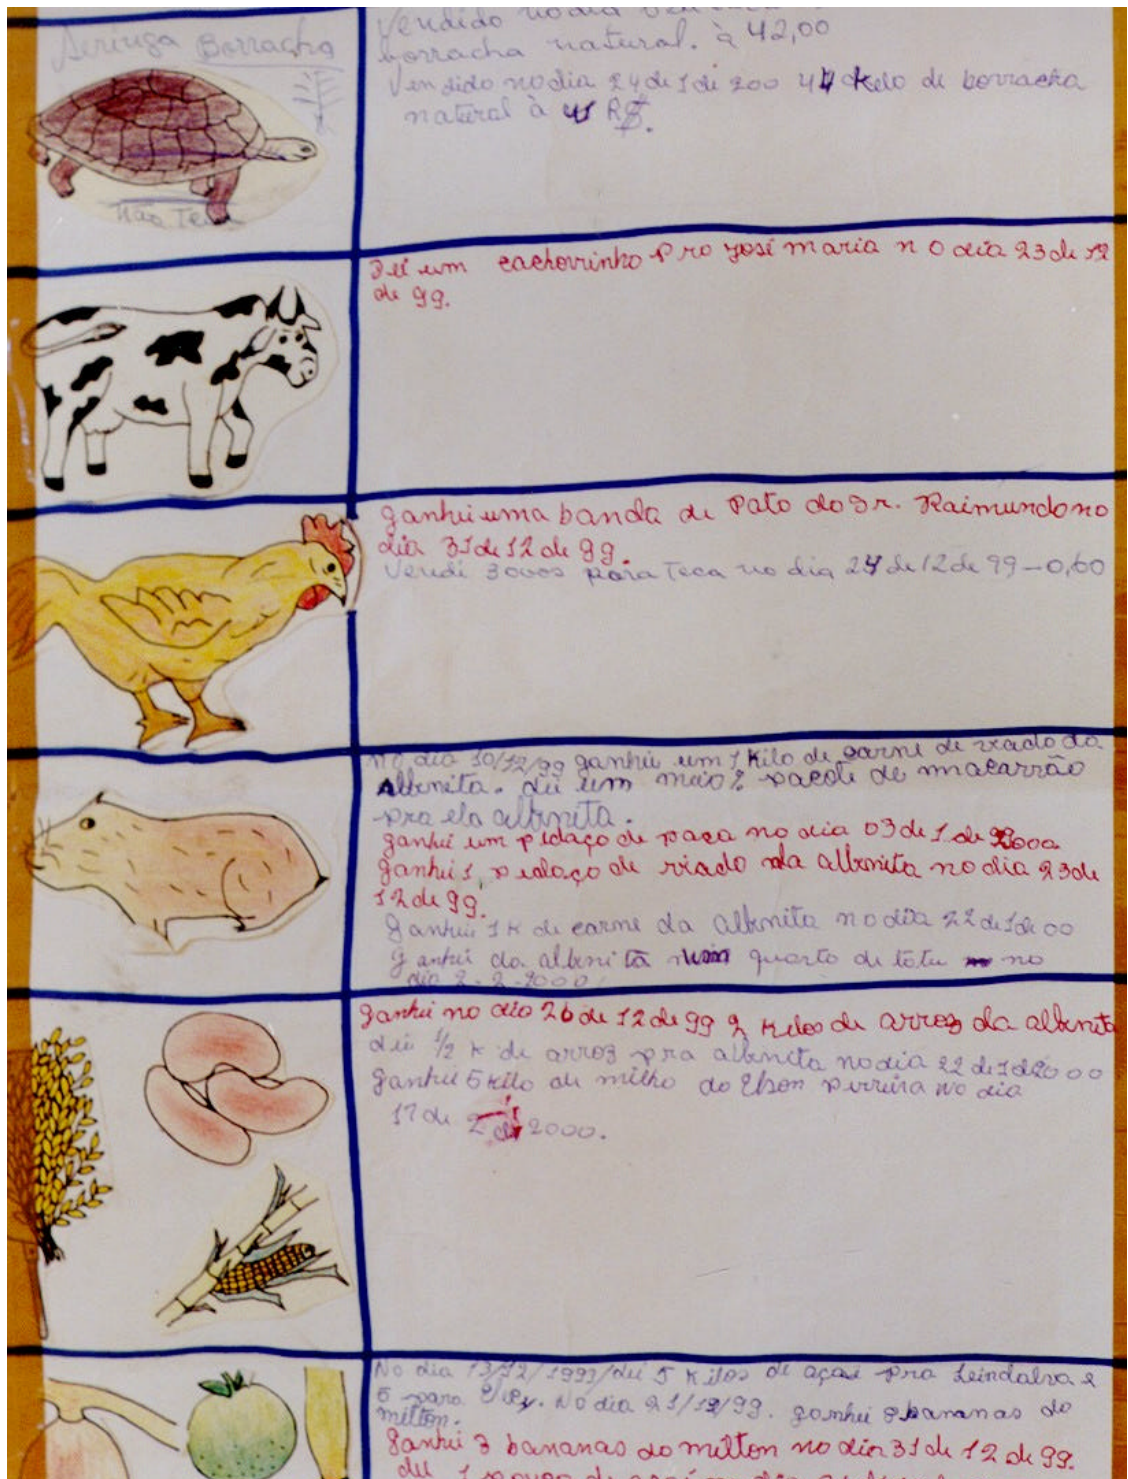 Seringa Borracha
Não Teca
Vendido no dia
borracha natural. à 42,00
Vendido no dia 24 de 1 de 200 44 kelo de borracha
natural à R$.
Dei um cachorrinho pro José maria no dia 23 de 12
de 99.
ganhei uma banda de Pato do Sr. Raimundo no
dia 31 de 12 de 99.
Vendi 3 ovos para Teca no dia 24 de 12 de 99 - 0,60
No dia 10/12/99 ganhei um 1 Kilo de carne de viado da
Albenita. dei um meio ½ pacote de macarrão
pra ela albenita.
ganhei um pedaço de paca no dia 03 de 1 de 2000
ganhei 1 pedaço de viado da albenita no dia 23 de
12 de 99.
Ganhei 1 K de carne da albenita no dia 22 de 1 de 00
ganhei da albenita um quarto de tatu no
dia 2-2-2000
ganhei no dia 26 de 12 de 99 2 kilos de arroz da albenita
dei 1/2 K de arroz pra albenita no dia 22 de 1 de 2000
Ganhei 5 kilo de milho do Elson pirreira no dia
17 de 2 de 2000.
No dia 13/12/1999/dei 5 Kilos de açai pra Leindalva e
5 para No dia 21/12/99. ganhei bananas do
milton.
Ganhei 3 bananas do milton no dia 31 de 12 de 99.
dei 1